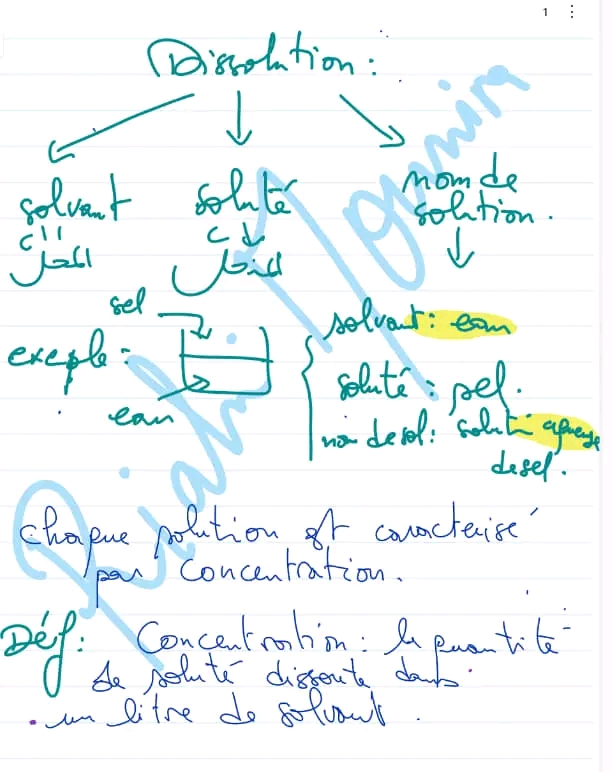 1
Dissolution :
solvant soluté nom de
solution.
المحل المنحل
sel
exeple : solvant : eau
soluté : sel.
eau
nom de sol : soluti aqueuse
de sel.
chaque solution est caracterisé
par concentration.
Déf : Concentration : la quantité
de soluté dissoute dans
un litre de solvant.
Riahi Monnin